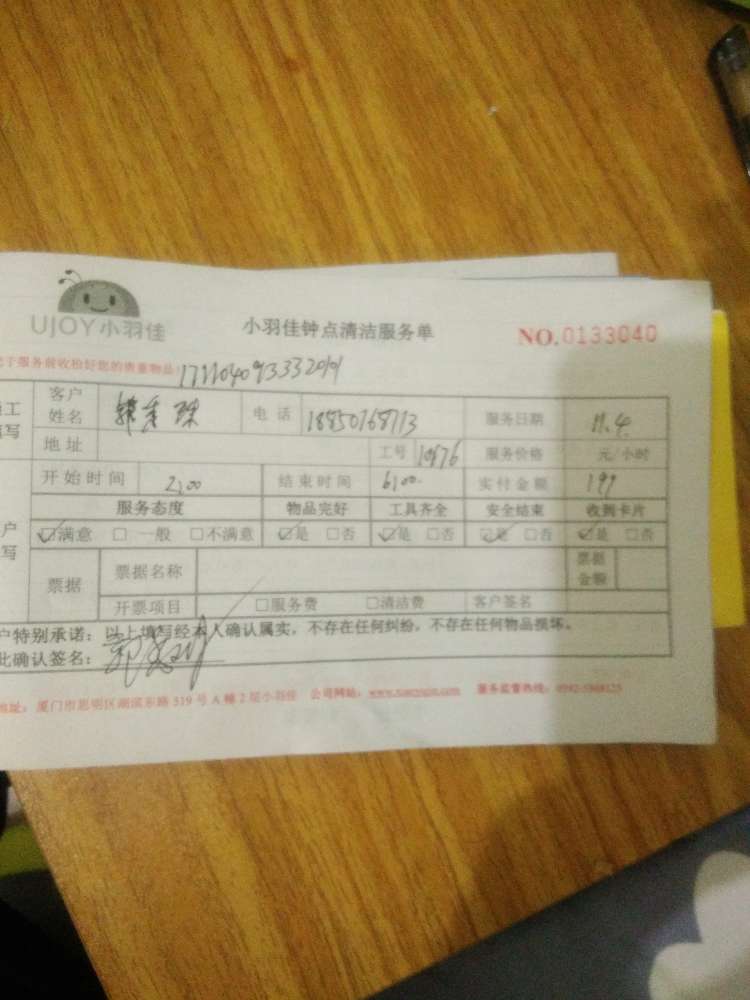 UJOY小羽佳
小羽佳钟点清洁服务单
NO.0133040
于服务前收拾好您的贵重物品
客户姓名 电话 18850768713 服务日期 11.4
地址 工号 10876 服务价格 元/小时
开始时间 2:00 结束时间 6:00 实付金额 199
服务态度 物品完好 工具齐全 安全结束 收到卡片
☑满意 □一般 □不满意 ☑是 □否 ☑是 □否 ☑是 □否 ☑是 □否
票据 票据名称 票据金额
开票项目 □服务费 □清洁费 客户签名
户特别承诺：以上填写经本人确认属实，不存在任何纠纷，不存在任何物品损坏。
此确认签名：
地址：厦门市思明区湖滨东路319号A幢2层小羽佳 公司网站： 服务监督热线：